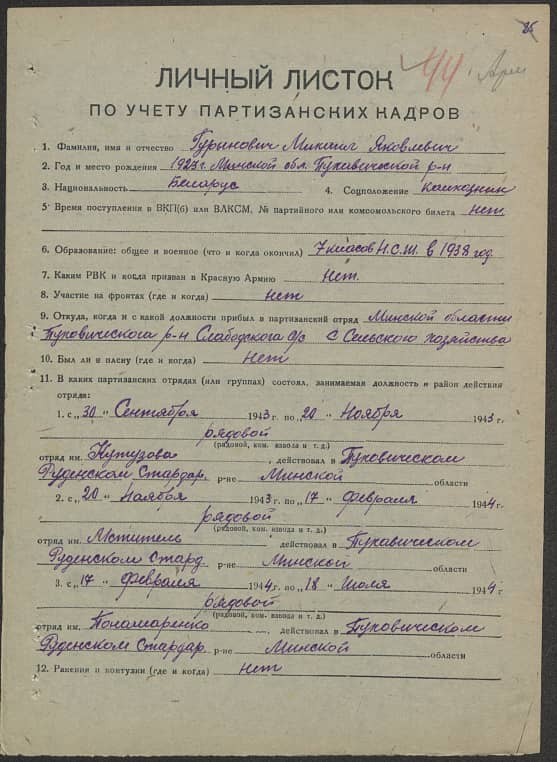 44 Арм
ЛИЧНЫЙ ЛИСТОК
ПО УЧЕТУ ПАРТИЗАНСКИХ КАДРОВ
1. Фамилия, имя и отчество Гуринович Михаил Яковлевич
2. Год и место рождения 1923 г. Минской обл. Пуховический р-н
3. Национальность Беларус 4. Соцположение колхозник
5. Время поступления в ВКП(б) или ВЛКСМ, № партийного или комсомольского билета нет.
6. Образование: общее и военное (что и когда окончил) 7 классов Н.С.Ш. в 1938 год
7. Каким РВК и когда призван в Красную Армию Нет.
8. Участие на фронтах (где и когда) нет
9. Откуда, когда и с какой должности прибыл в партизанский отряд Минской области
Пуховического р-н Слободского с/с с Сельского хозяйства
10. Был ли в плену (где и когда) нет
11. В каких партизанских отрядах (или группах) состоял, занимаемая должность и район действия
отряда:
1. с „30" Сентября 1943 г. по „20" Ноября 1943 г.
рядовой
(рядовой, ком. взвода и т. д.)
отряд им. Кутузова, действовал в Пуховическом
Руденском Стардор. р-не Минской области
2. с „20" Ноября 1943 г. по „17" февраля 1944 г.
рядовой
(рядовой, ком. взвода и т. д.)
отряд им. Мститель действовал в Пуховическом
Руденском Стард. р-не Минской области
3. с „17" февраля 1944 г. по „18" июля 1944 г.
рядовой
(рядовой, ком. взвода и т. д.)
отряд им. Пономаренко, действовал в Пуховическом
Руденском Стардор. р-не Минской области
12. Ранения и контузии (где и когда) нет